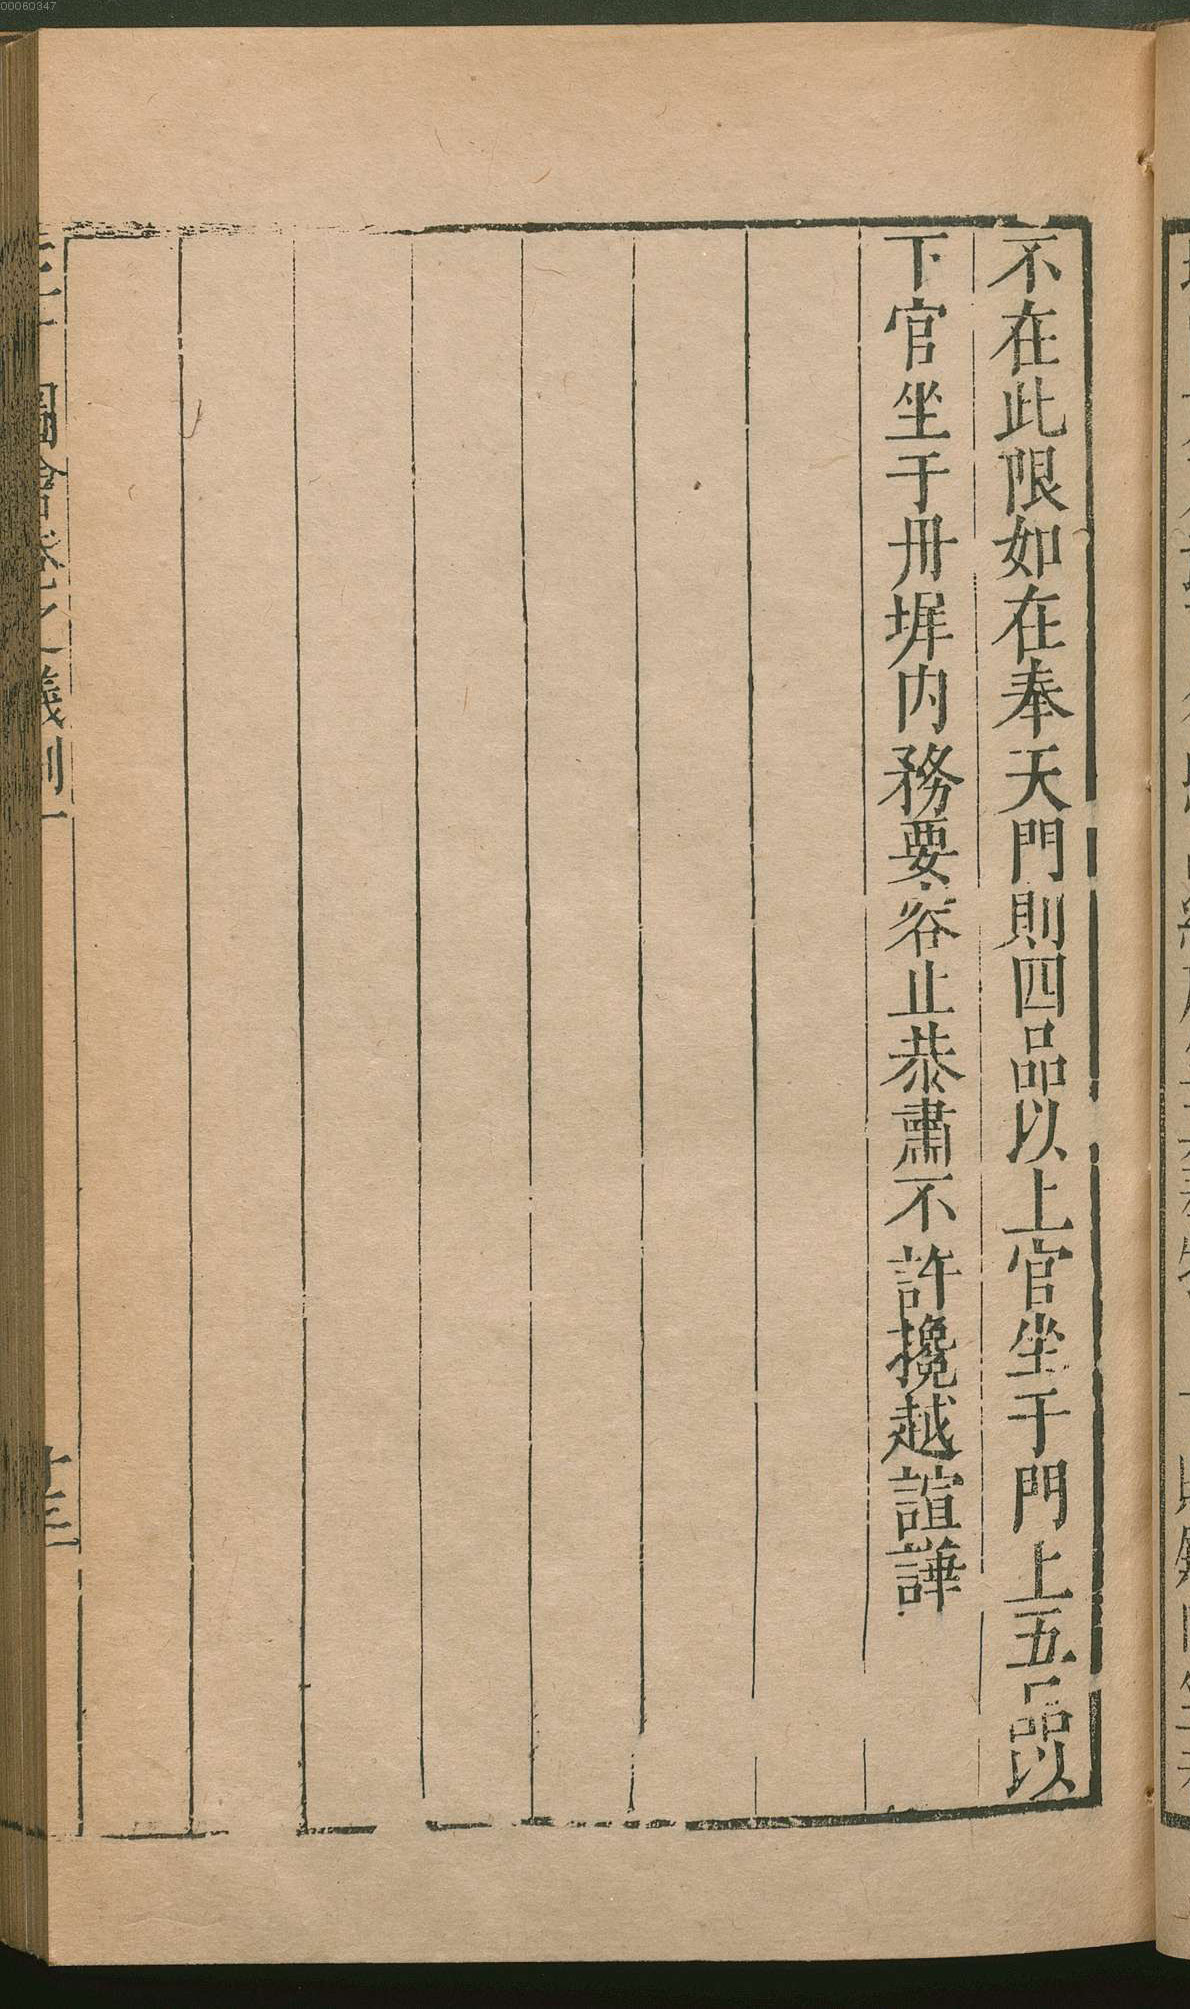 不在此限如在奉天門則四品以上官坐于門上五品以
下官坐于丹墀内務要容止恭肅不許攙越諠譁
圖會卷之 儀制一
廿三
00060347